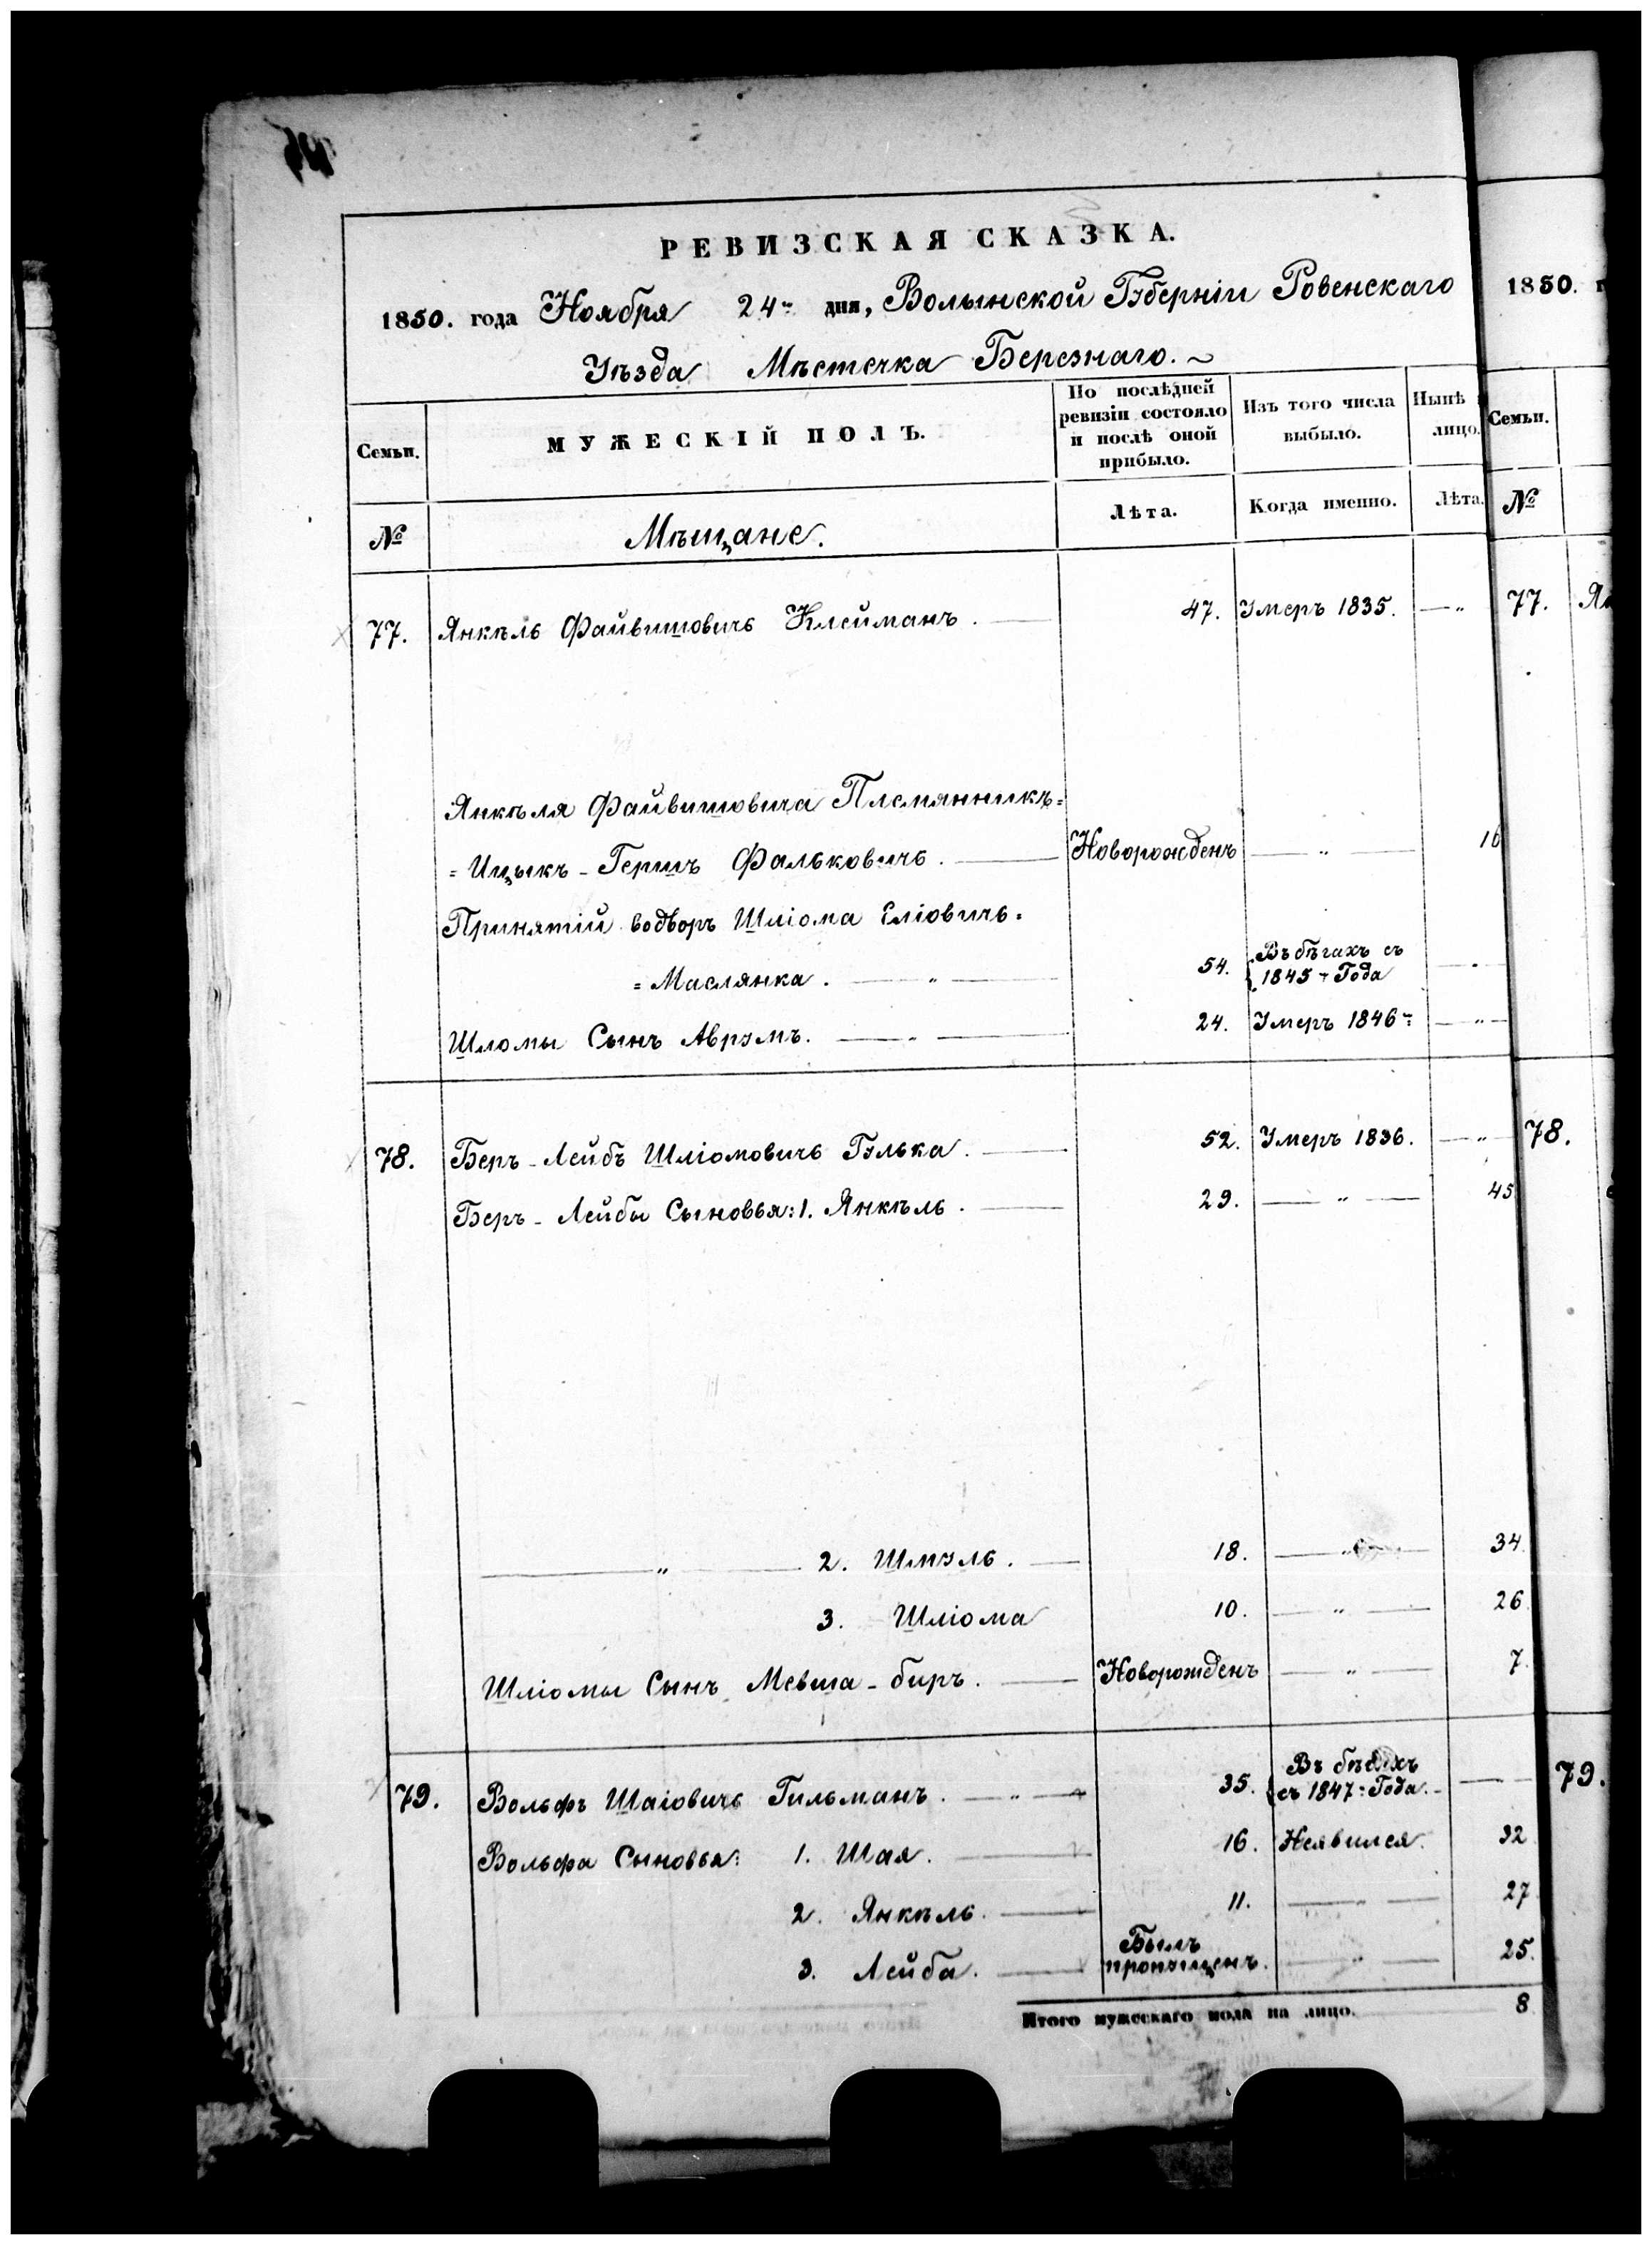 РЕВИЗСКАЯ СКАЗКА.
1850. года Ноября 24го дня, Волынской Губерніи Ровенскаго
Уѣзда Мѣстечка Березнаго.
Семьи. МУЖЕСКІЙ ПОЛЪ. По послѣдней ревизіи состояло и послѣ оной прибыло. Изъ того числа выбыло. Нынѣ лицо.
№ Мѣщане. Лѣта. Когда именно. Лѣта.
77. Янкѣль Файвишовичь Клейманъ. 47. Умеръ 1835. — „
Янкѣля Файвишовича Племянникъ=
=Ицыкъ-Гершъ Фальковичь. Новорожденъ — „ — 16
Принятій водворъ Шліома Еліовичь=
=Маслянка. — „ — 54. Въ бѣгахъ съ 1845 Года —
Шломы Сынъ Аврумъ. — „ — 24. Умеръ 1846 — „ —
78. Беръ-Лейбъ Шліомовичь Гулька. 52. Умеръ 1836. — „ —
Беръ-Лейбы Сыновья: 1. Янкѣль. 29. — „ — 45
— „ — 2. Шмуль. 18. — „ — 34
3. Шліома 10. — „ — 26
Шліомы Сынъ Мевша-биръ. Новорожденъ — „ — 7
79. Вольфъ Шаіовичь Гильманъ. — „ — 35. Въ бѣгахъ съ 1847 Года. —
Вольфа Сыновья: 1. Шая. 16. Неявился 32
2. Янкѣль. 11. — „ — 27
3. Лейба. Былъ пропущенъ. — „ — 25.
Итого мужескаго пола на лицо. 8
1850.
Семьи.
№
77.
78.
79.